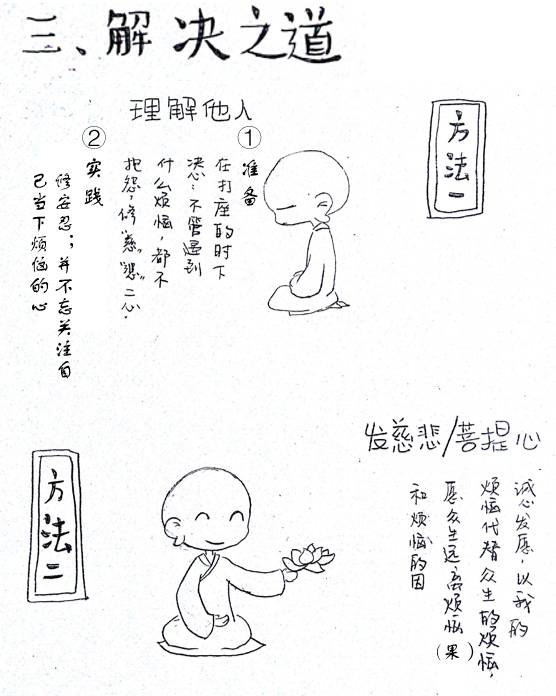 三、解决之道
方法一
理解他人
①
准备
在打座的时下
决心：不管遇到
什么烦恼，都不
抱怨，修“慈”“悲”二心．
②
实践
修安忍；并不忘关注自
己当下烦恼的心
发慈悲/菩提心
诚心发愿，以我的
烦恼代替众生的烦恼，
愿众生远离烦恼（果）
和烦恼的因
方法二